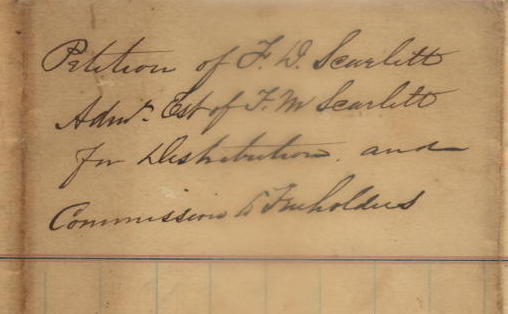 Petition of F. D. Scarlett
Admr. Est of F. M Scarlett
for Distribution. and
Commission to Freeholders